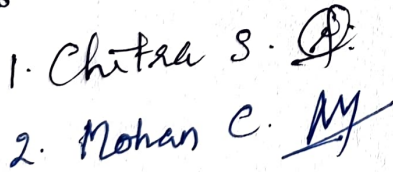 1. Chitra S.
2. Mohan C.